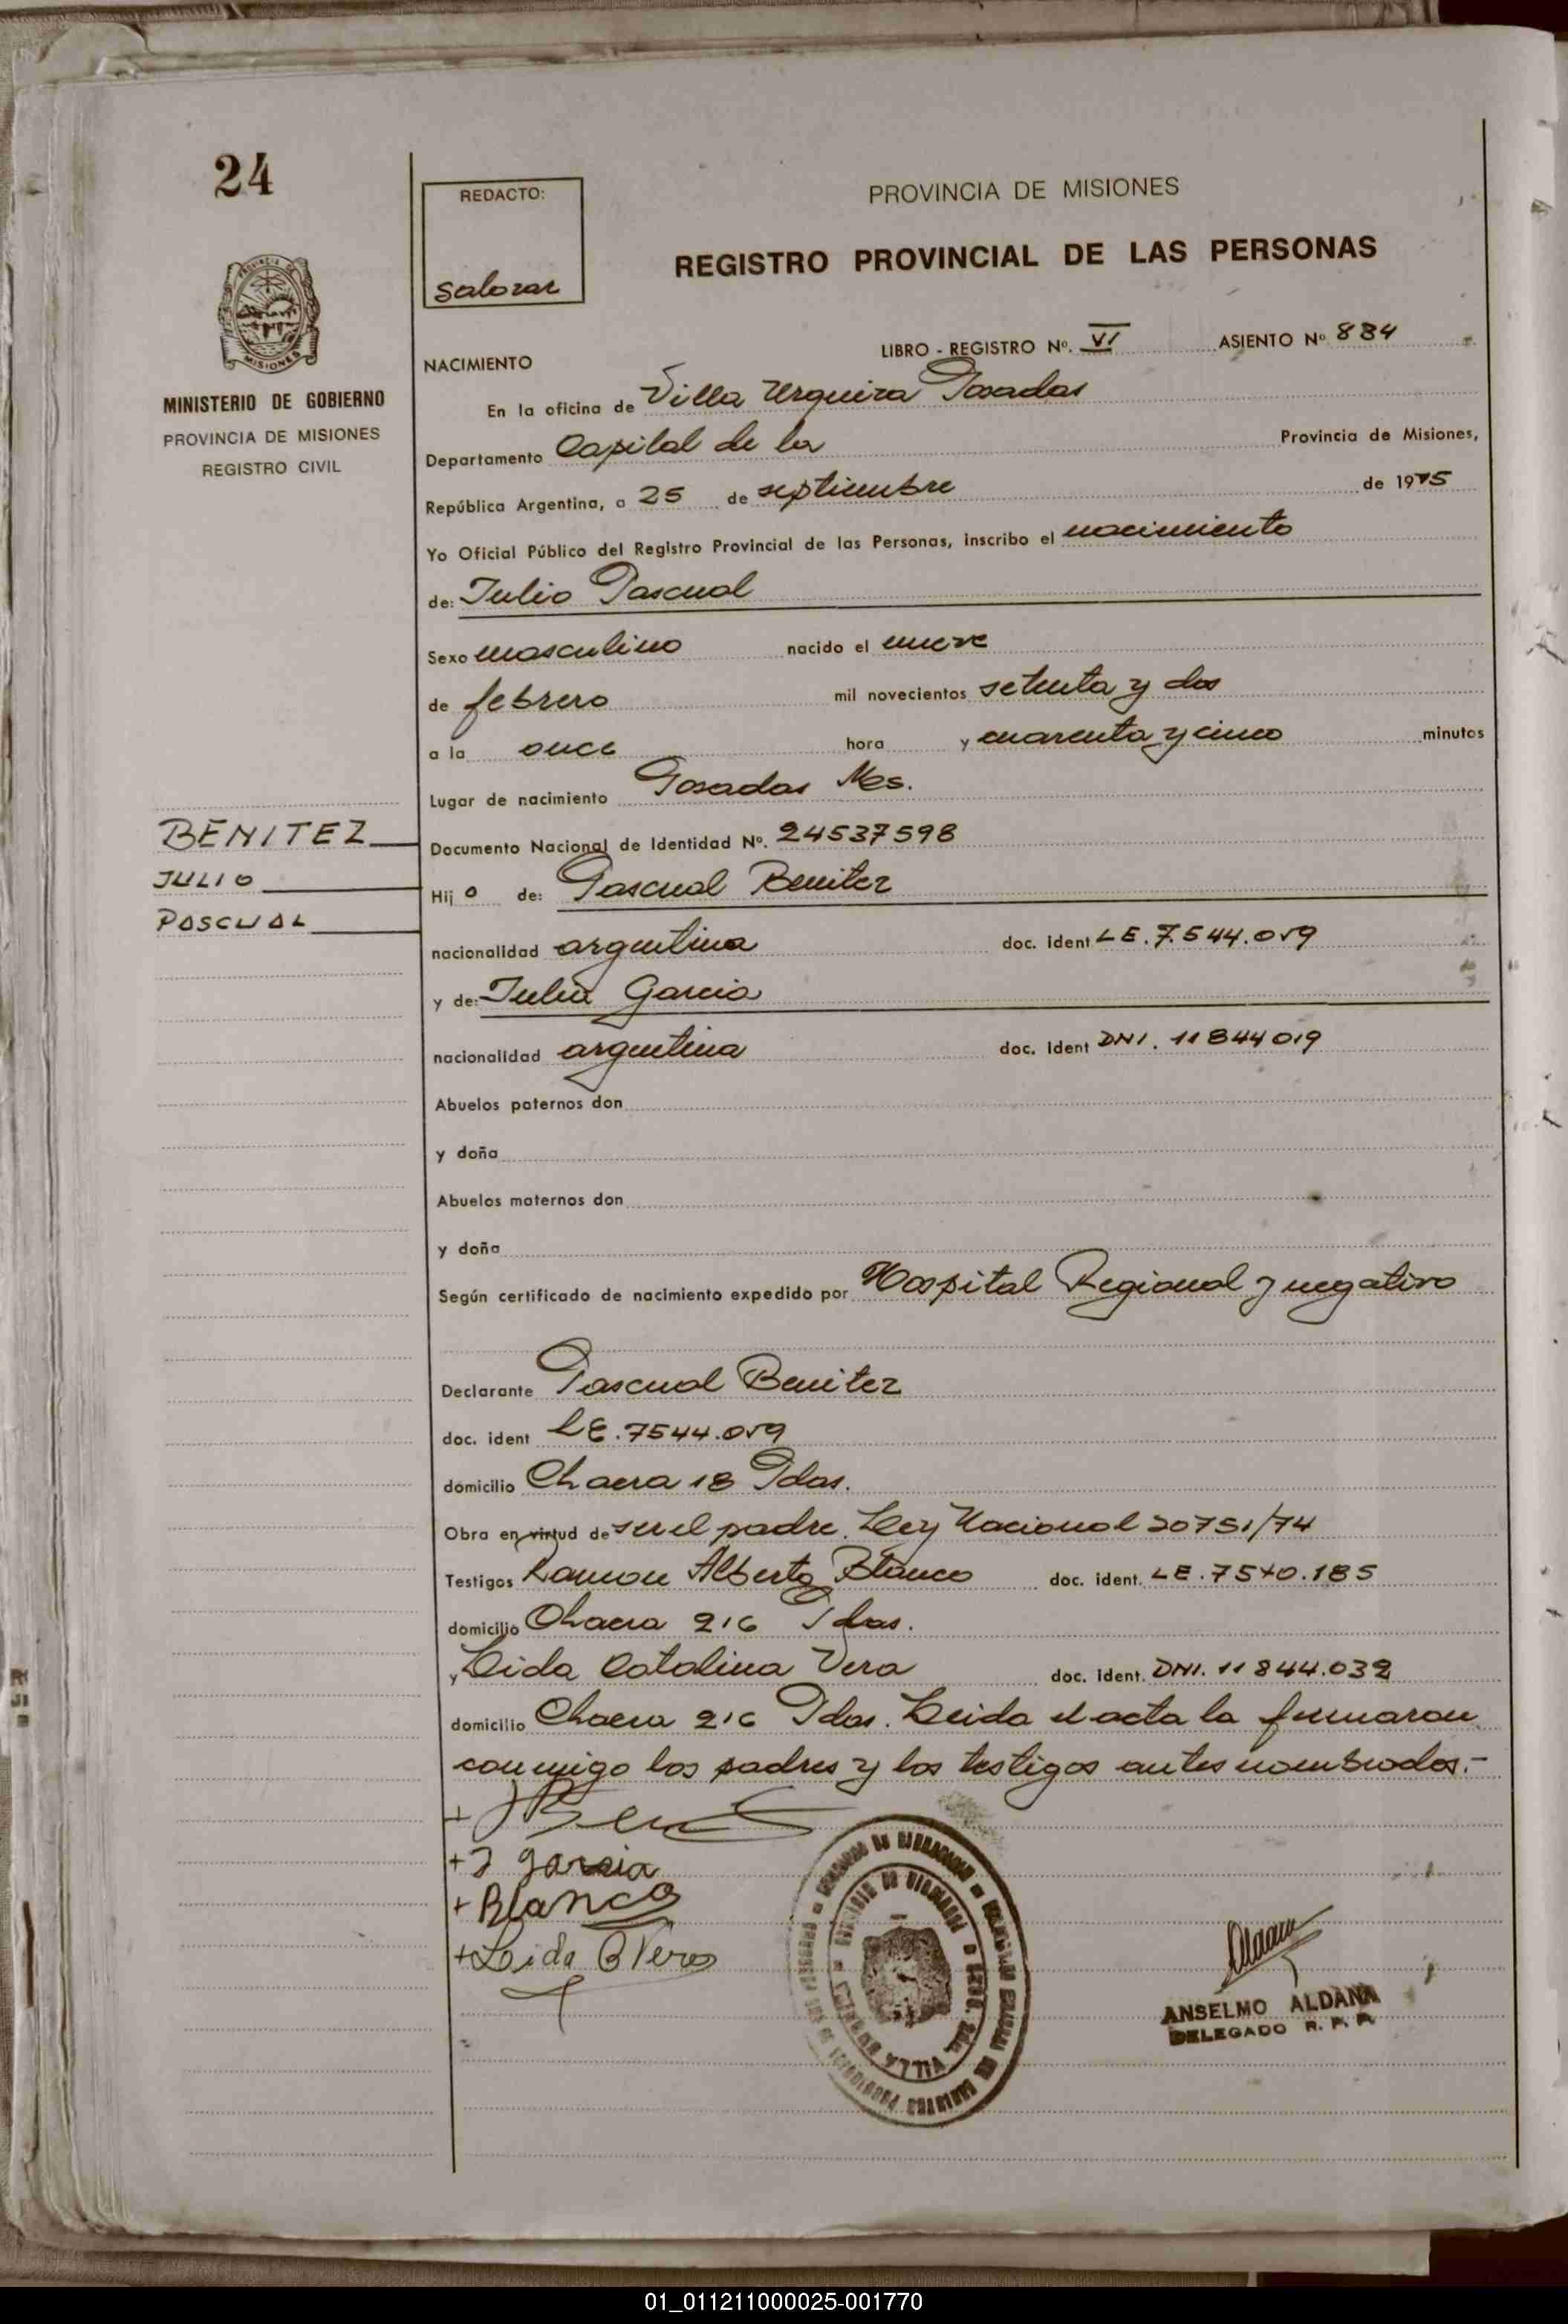 24
REDACTO:
Salozar
PROVINCIA DE MISIONES
REGISTRO PROVINCIAL DE LAS PERSONAS
PROVINCIA DE
MISIONES
MINISTERIO DE GOBIERNO
PROVINCIA DE MISIONES
REGISTRO CIVIL
LIBRO - REGISTRO Nº. VI ASIENTO Nº 884
NACIMIENTO
En la oficina de Villa Urquiza Posadas
Departamento Capital de la Provincia de Misiones,
República Argentina, a 25 de septiembre de 1975
Yo Oficial Público del Registro Provincial de las Personas, inscribo el nacimiento
de: Julio Pascual
Sexo masculino nacido el nueve
de febrero mil novecientos setenta y dos
a la once hora y cuarenta y cinco minutos
Lugar de nacimiento Posadas Mes.
BENITEZ
JULIO
PASCUAL
Documento Nacional de Identidad Nº. 24537598
Hij o de: Pascual Benitez
nacionalidad argentina doc. ident LE. 7.544.059
y de: Julia Garcia
nacionalidad argentina doc. ident DNI. 11844019
Abuelos paternos don
y doña
Abuelos maternos don
y doña
Según certificado de nacimiento expedido por Hospital Regional y negativo
Declarante Pascual Benitez
doc. ident LE. 7544.059
domicilio Chacra 18 Pdas.
Obra en virtud de ser el padre. Ley Nacional 20751/74
Testigos Ramon Alberto Blanco doc. ident. LE. 7540.185
domicilio Chacra 216 Pdas.
y Leida Catalina Vera doc. ident. DNI. 11844.032
domicilio Chacra 216 Pdas. Leida el acta la firmaron
conmigo los padres y los testigos antes nombrados.-
+ J Garcia
+ Blanco
+ Leida C Vera
VILLA
ANSELMO ALDANA
DELEGADO R. P. P.
01_011211000025-001770